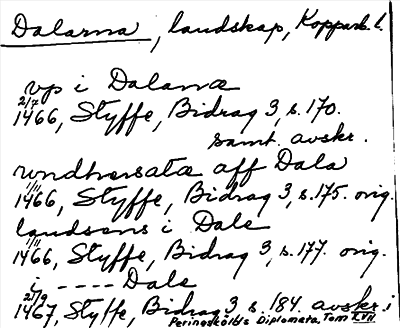 Dalarna, landskap, Kopparb. l.
vp i Dalana
2/7
1466, Styffe, Bidrag 3, s. 170.
samt. avskr.
wndhersatæ aff Dala
1/11
1466, Styffe, Bidrag 3, s. 175. orig.
landsens i Dale
1/11
1466, Styffe, Bidrag 3, s. 177. orig.
i ---- Dale
21/9
1467, Styffe, Bidrag 3 s. 184. avskr. i
Peringskölds Diplomata, Tom. VII.